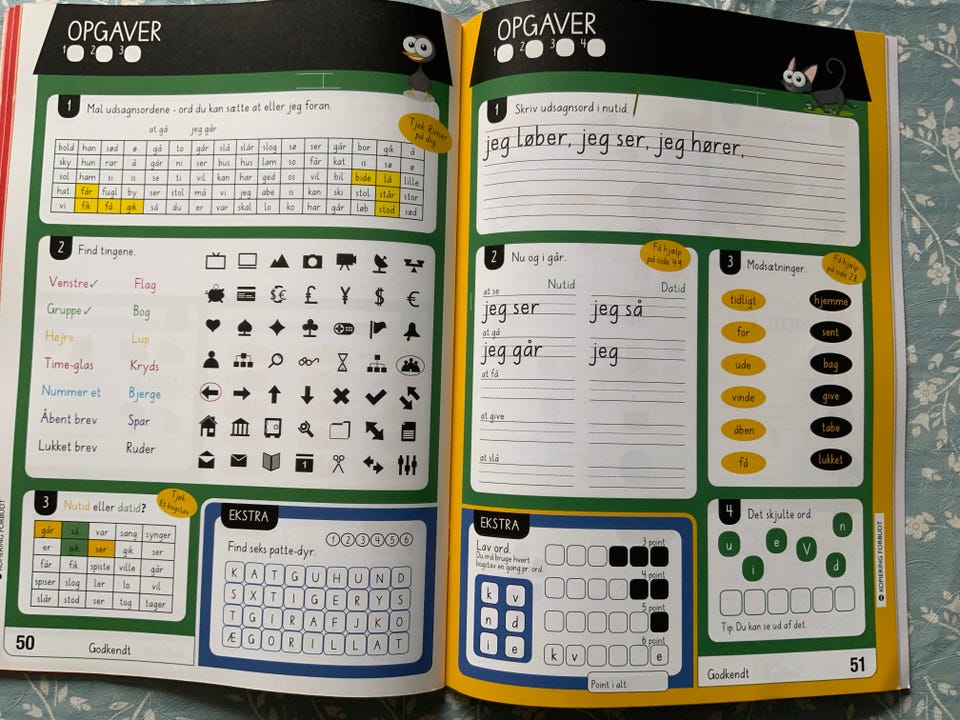 OPGAVER
1 2 3
1 Mal udsagnsordene - ord du kan sætte at eller jeg foran.
at gå jeg går
Tjek Rimer
på dig
bold han sød ø gå to går slå slår slog sø ser går bor gik å
sky hun rar å går ni ser bus hus lam so får kat is sø ø
sol ham si is se ti vil kan har ged os vil bil bide lå lille
hat får fugl by ser stol må vi jeg abe is kan ski stol står stor
vi fik få gik så du er var skal lo ko har går løb stod sød
2 Find tingene.
Venstre✓ Flag
Gruppe✓ Bog
Højre Lup
Time-glas Kryds
Nummer et Bjerge
Åbent brev Spar
Lukket brev Ruder
3 Nutid eller datid?
Tjek
Et bogstav
går så var sang synger
er gik ser gik ser
får fik spiste ville går
spiser slog ler lo vil
slår stod ser tog tager
EKSTRA
1 2 3 4 5 6
Find seks patte-dyr.
K A T G U H U N D
S X T I G E R Y S
T G I R A F J K O
Æ G O R I L L A T
50
Godkendt
KOPIERING FORBUDT
OPGAVER
1 2 3 4
1 Skriv udsagnsord i nutid.
jeg løber, jeg ser, jeg hører,
2 Nu og i går.
Få hjælp
på side 49
Nutid Datid
at se
jeg ser jeg så
at gå
jeg går jeg
at få
at give
at slå
3 Modsætninger.
Få hjælp
på side 28
tidligt hjemme
for sent
ude bag
vinde give
åben tabe
få lukket
EKSTRA
Lav ord.
Du må bruge hvert
bogstav en gang pr. ord.
k v
n d
i e
3 point
4 point
5 point
6 point
k v e
Point i alt:
4 Det skjulte ord.
u e V n
i d
Tip: Du kan se ud af det.
Godkendt
51
KOPIERING FORBUDT